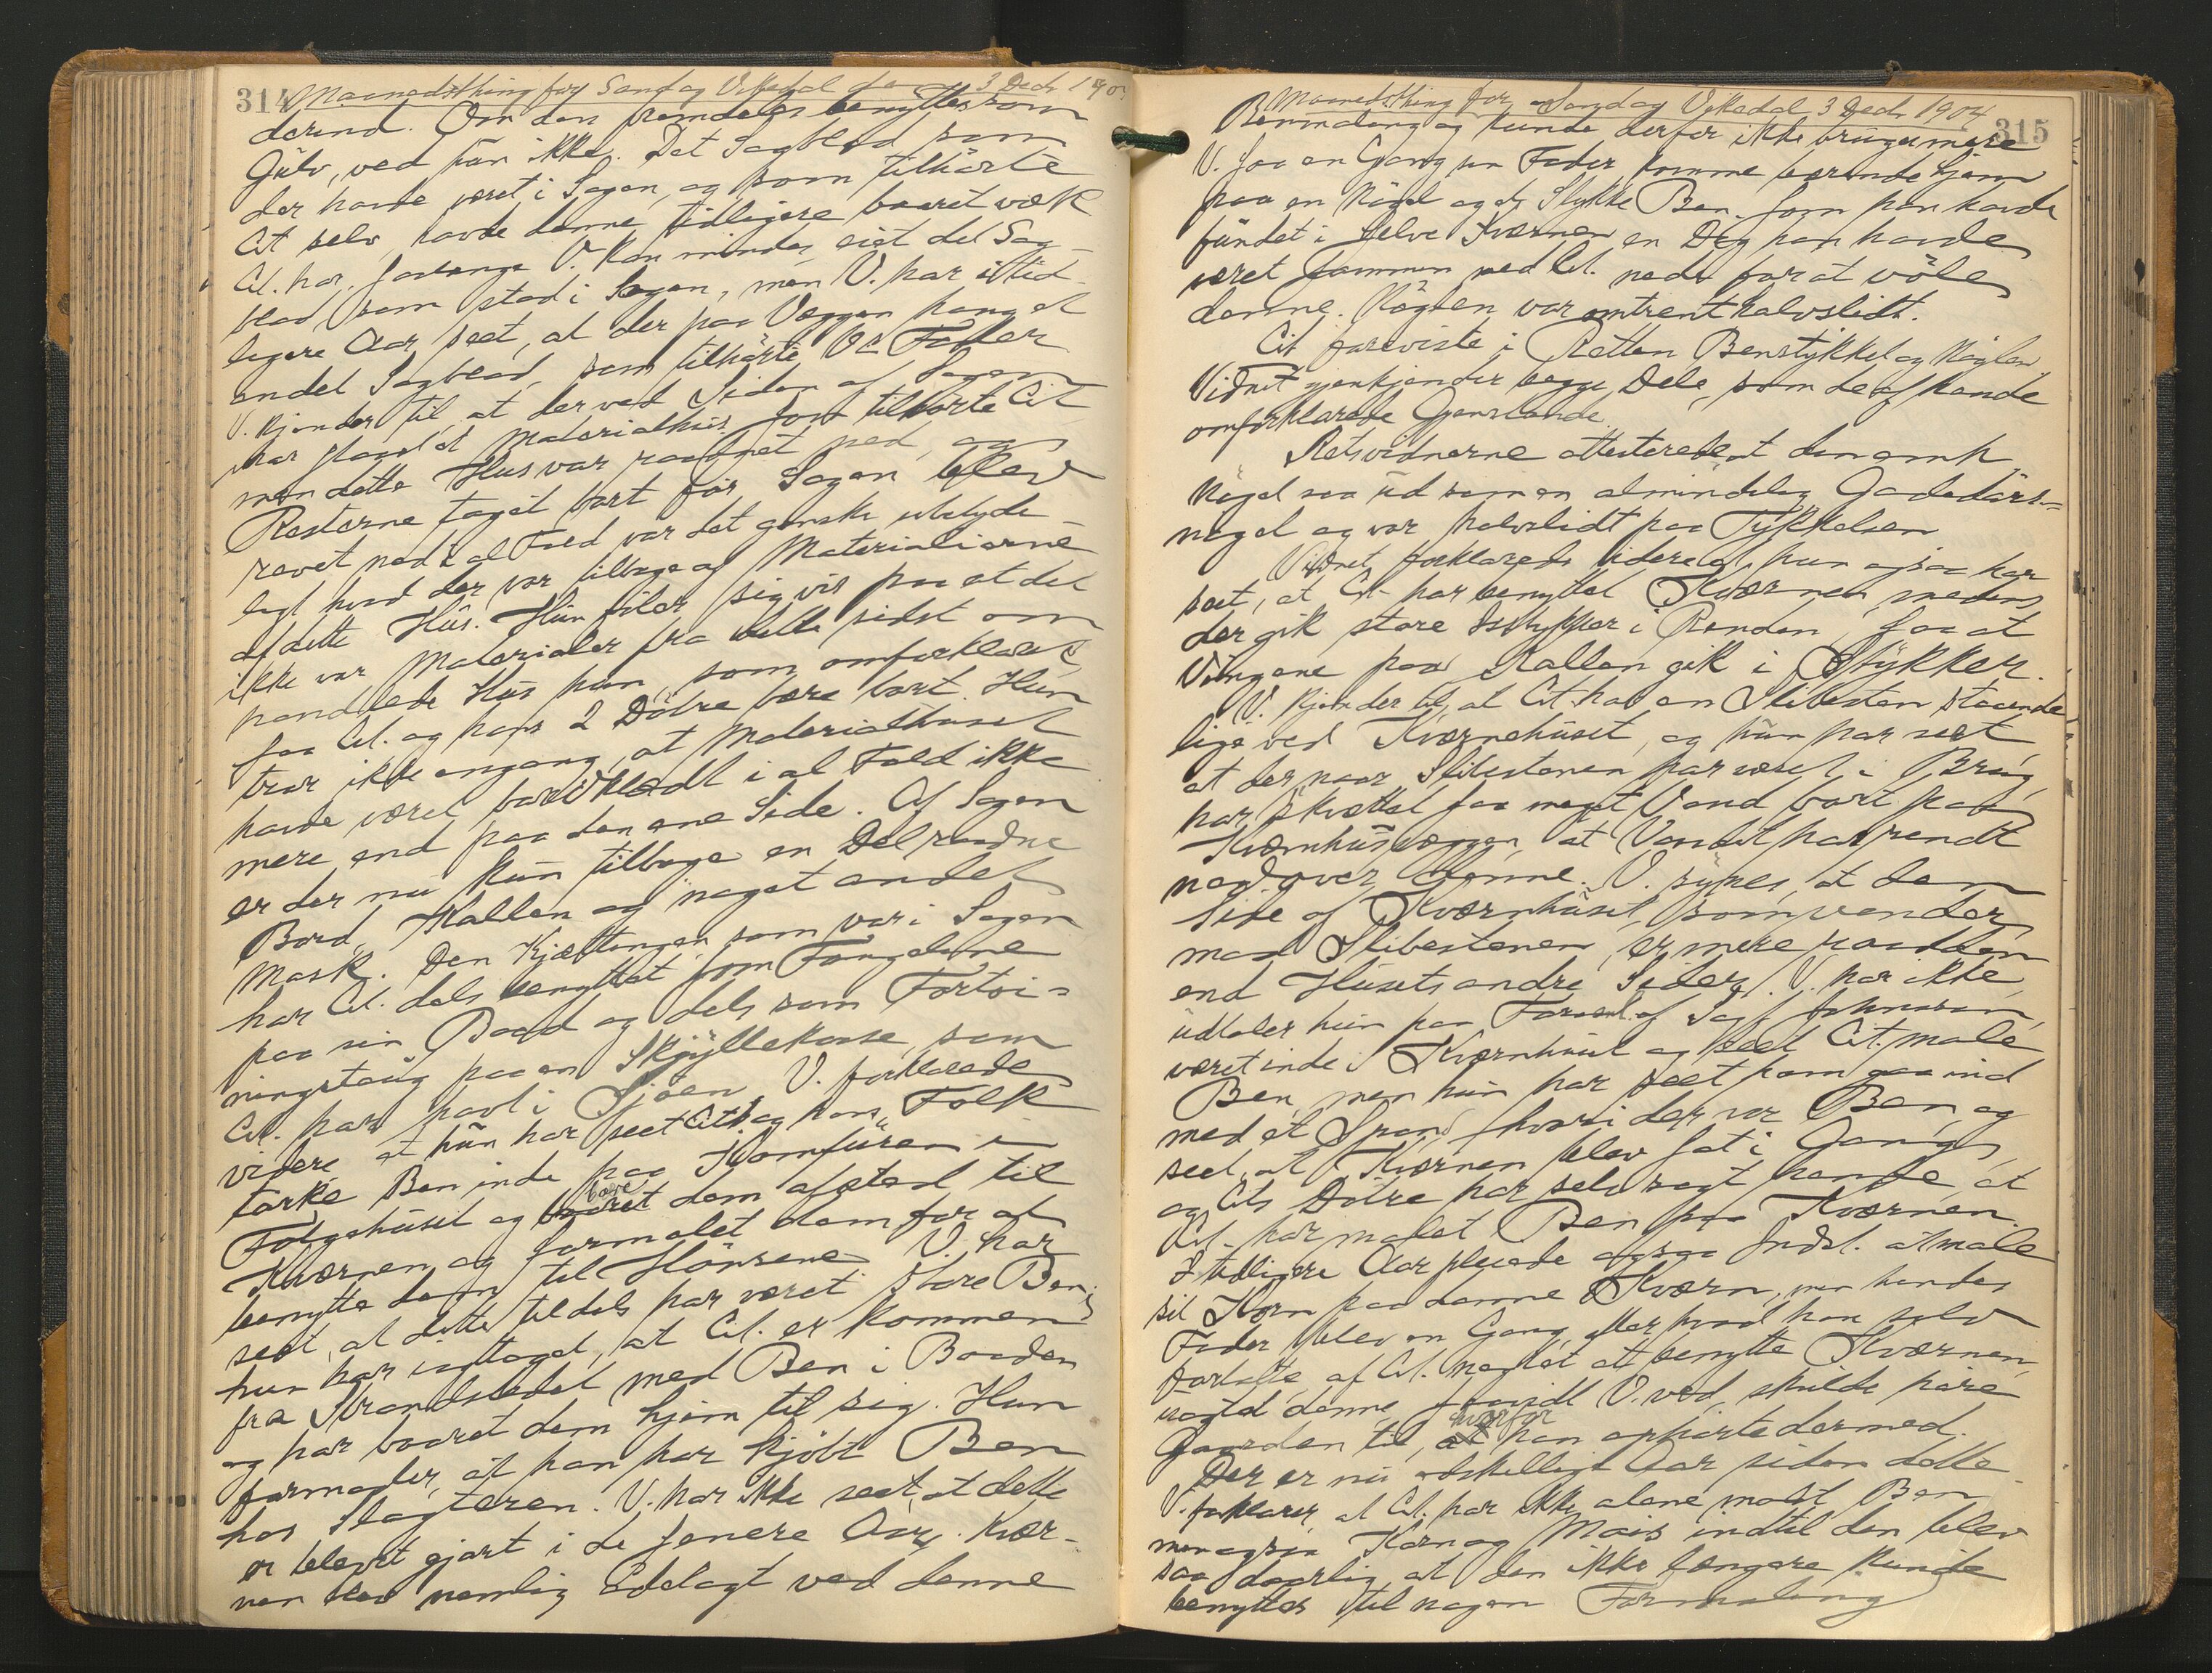 314
Maanedsthing for Sand og Vikedal den 3 Decb 190
derind. Om den fremdeles benyttes som
Gulv, ved hun ikke. Det Sagblad som
der havde været i Sagen, og som tilhørte
Cit selv, havde denne tidligere baaret væk
Cit. har, saalænge V. kan mindes, eiet det Sag-
blad, som stod i Sagen, men V. har i tid-
ligere Aar seet, at der paa Væggen hang et
andet Sagblad, som tilhørte Vs Fader
V. kjender til, at der ved Siden af Sagen
har staaet et Materialhus som tilhørte Cit
men dette Hus var raadnet ned, og
Resterne taget bort før Sagen blev
revet ned. I al Fald var det ganske ubetyde-
ligt hvad der var tilbage af Materialierne
af dette Hus. Hun føler sig vis paa at det
ikke var Materialer fra dette sidst om
handlede Hus hun, som omforklaret,
saa Cit. og hans 2 Døtre bære bort. Hun
tror ikke engang, at Materialhuset
havde været bordklædt i al Fald ikke
mere end paa den ene Side. Af Sagen
er der nu kun tilbage en Del raadne
Bord, Kallen og noget andet
Mask. Den Kjættingen, som var i Sagen
har Cit. dels benyttet som Fangeline
paa sin Baad og dels som Fortøi-
ningstaug paa en Skjyllekasse, som
Cit. har havt i Sjøen. V. forklarede
videre at hun har seet Cit. og hans Folk
tørke Ben inde paa Komfuren i
Følgehuset og bære dem afsted til
Kværnen og formalet dem for at
benytte dem til Hønsene. V. har
seet, at dette tildels har været store Ben;
hun har iagttaget, at Cit. er kommen
fra Strandstedet med Ben i Baaden
og har baaret dem hjem til sig. Hun
formoder, at han har kjøbt Ben
hos Slagteren. V. har ikke seet, at dette
er blevet gjort i de senere Aar. Kvær-
nen blev nemlig ødelagt ved denne
315
Maanedsthing for Sand og Vikedal 3 Decb 1904
Benmaling og kunde derfor ikke bruges mere
V. saa en Gang sin Fader komme bærende hjem
paa en Nagel og et Stykke Ben som han havde
fundet i selve Kværnen en Dag han havde
været sammen med Cit. nede for at vøle
denne. Naglen var omtrent halvslidt.
Cit foreviste i Retten Benstykket og Naglen
Vidnet gjenkjender begge Dele, som de af hende
omforklarede Gjenstande.
Retsvidnerne attesterede at den omh
Nagel saa ud som en almindelig
nagel og var halvslidt paa Tykkelsen
Vidnet forklarede videre at hun ogsaa har
seet, at Cit. har benyttet Kværnen medens
der gik store Isstykker i Renden, saa at
Vingene paa Kallen gik i Stykker.
V. kjender til, at Cit. har en Slibesten staaende
lige ved Kværnehuset, og hun har seet
at der, naar Slibestenen har været i Brug,
har skvættet saa meget Vand bort paa
Kværnhusvæggen, at Vandet har rendt
nedover denne. V. synes, at den
Side af Kværnhuset, som vender
mod Slibestenen, er mere raadden
end Husets andre Sider. V. har ikke,
udtaler hun paa Foranl. af Sagf. Johnsen,
været inde i Kværnhuset og seet Cit. male
Ben, men hun har seet ham gaa ind
med et Spand, hvori der var Ben, og
seet, at Kværnen blev sat i Gang,
og Cits Døtre har selv sagt hende, at
Cit. har malet Ben paa Kværnen.
I tidligere Aar pleiede ogsaa Indst. at male
sit Korn paa denne Kværn, men hendes
Fader blev en Gang, efter hvad han selv
fortalte, af Cit. nægtet at benytte Kværnen,
uagtet denne, saavidt V. ved, skulde høre
Gaarden til, hvorfor han ophørte dermed.
Der er nu adskillige Aar siden dette.
V. forklarer, at Cit. har ikke alene malt Ben
men ogsaa Korn og Mais indtil den blev
saa daarlig at den ikke længere kunde
benyttes til nogen Formaling